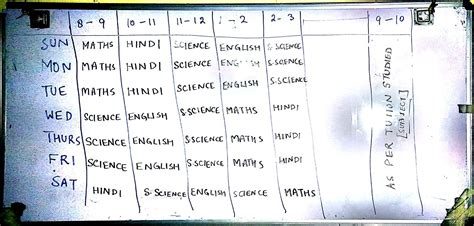 8-9 10-11 11-12 1-2 2-3 9-10
SUN MATHS HINDI SCIENCE ENGLISH S-SCIENCE
MON MATHS HINDI SCIENCE ENGLISH S-SCIENCE
TUE MATHS HINDI SCIENCE ENGLISH S-SCIENCE
WED SCIENCE ENGLISH S-SCIENCE MATHS HINDI
THURS SCIENCE ENGLISH S-SCIENCE MATHS HINDI
FRI SCIENCE ENGLISH S-SCIENCE MATHS HINDI
SAT HINDI S-SCIENCE ENGLISH SCIENCE MATHS
AS PER TUTION STUDIED
[SUBJECT]